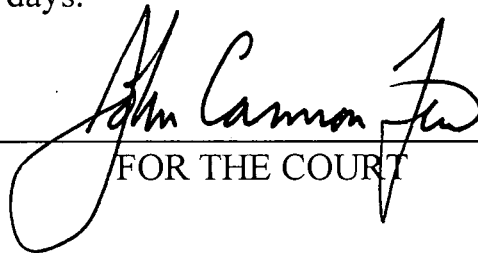 days.
John Cannon Few
FOR THE COURT